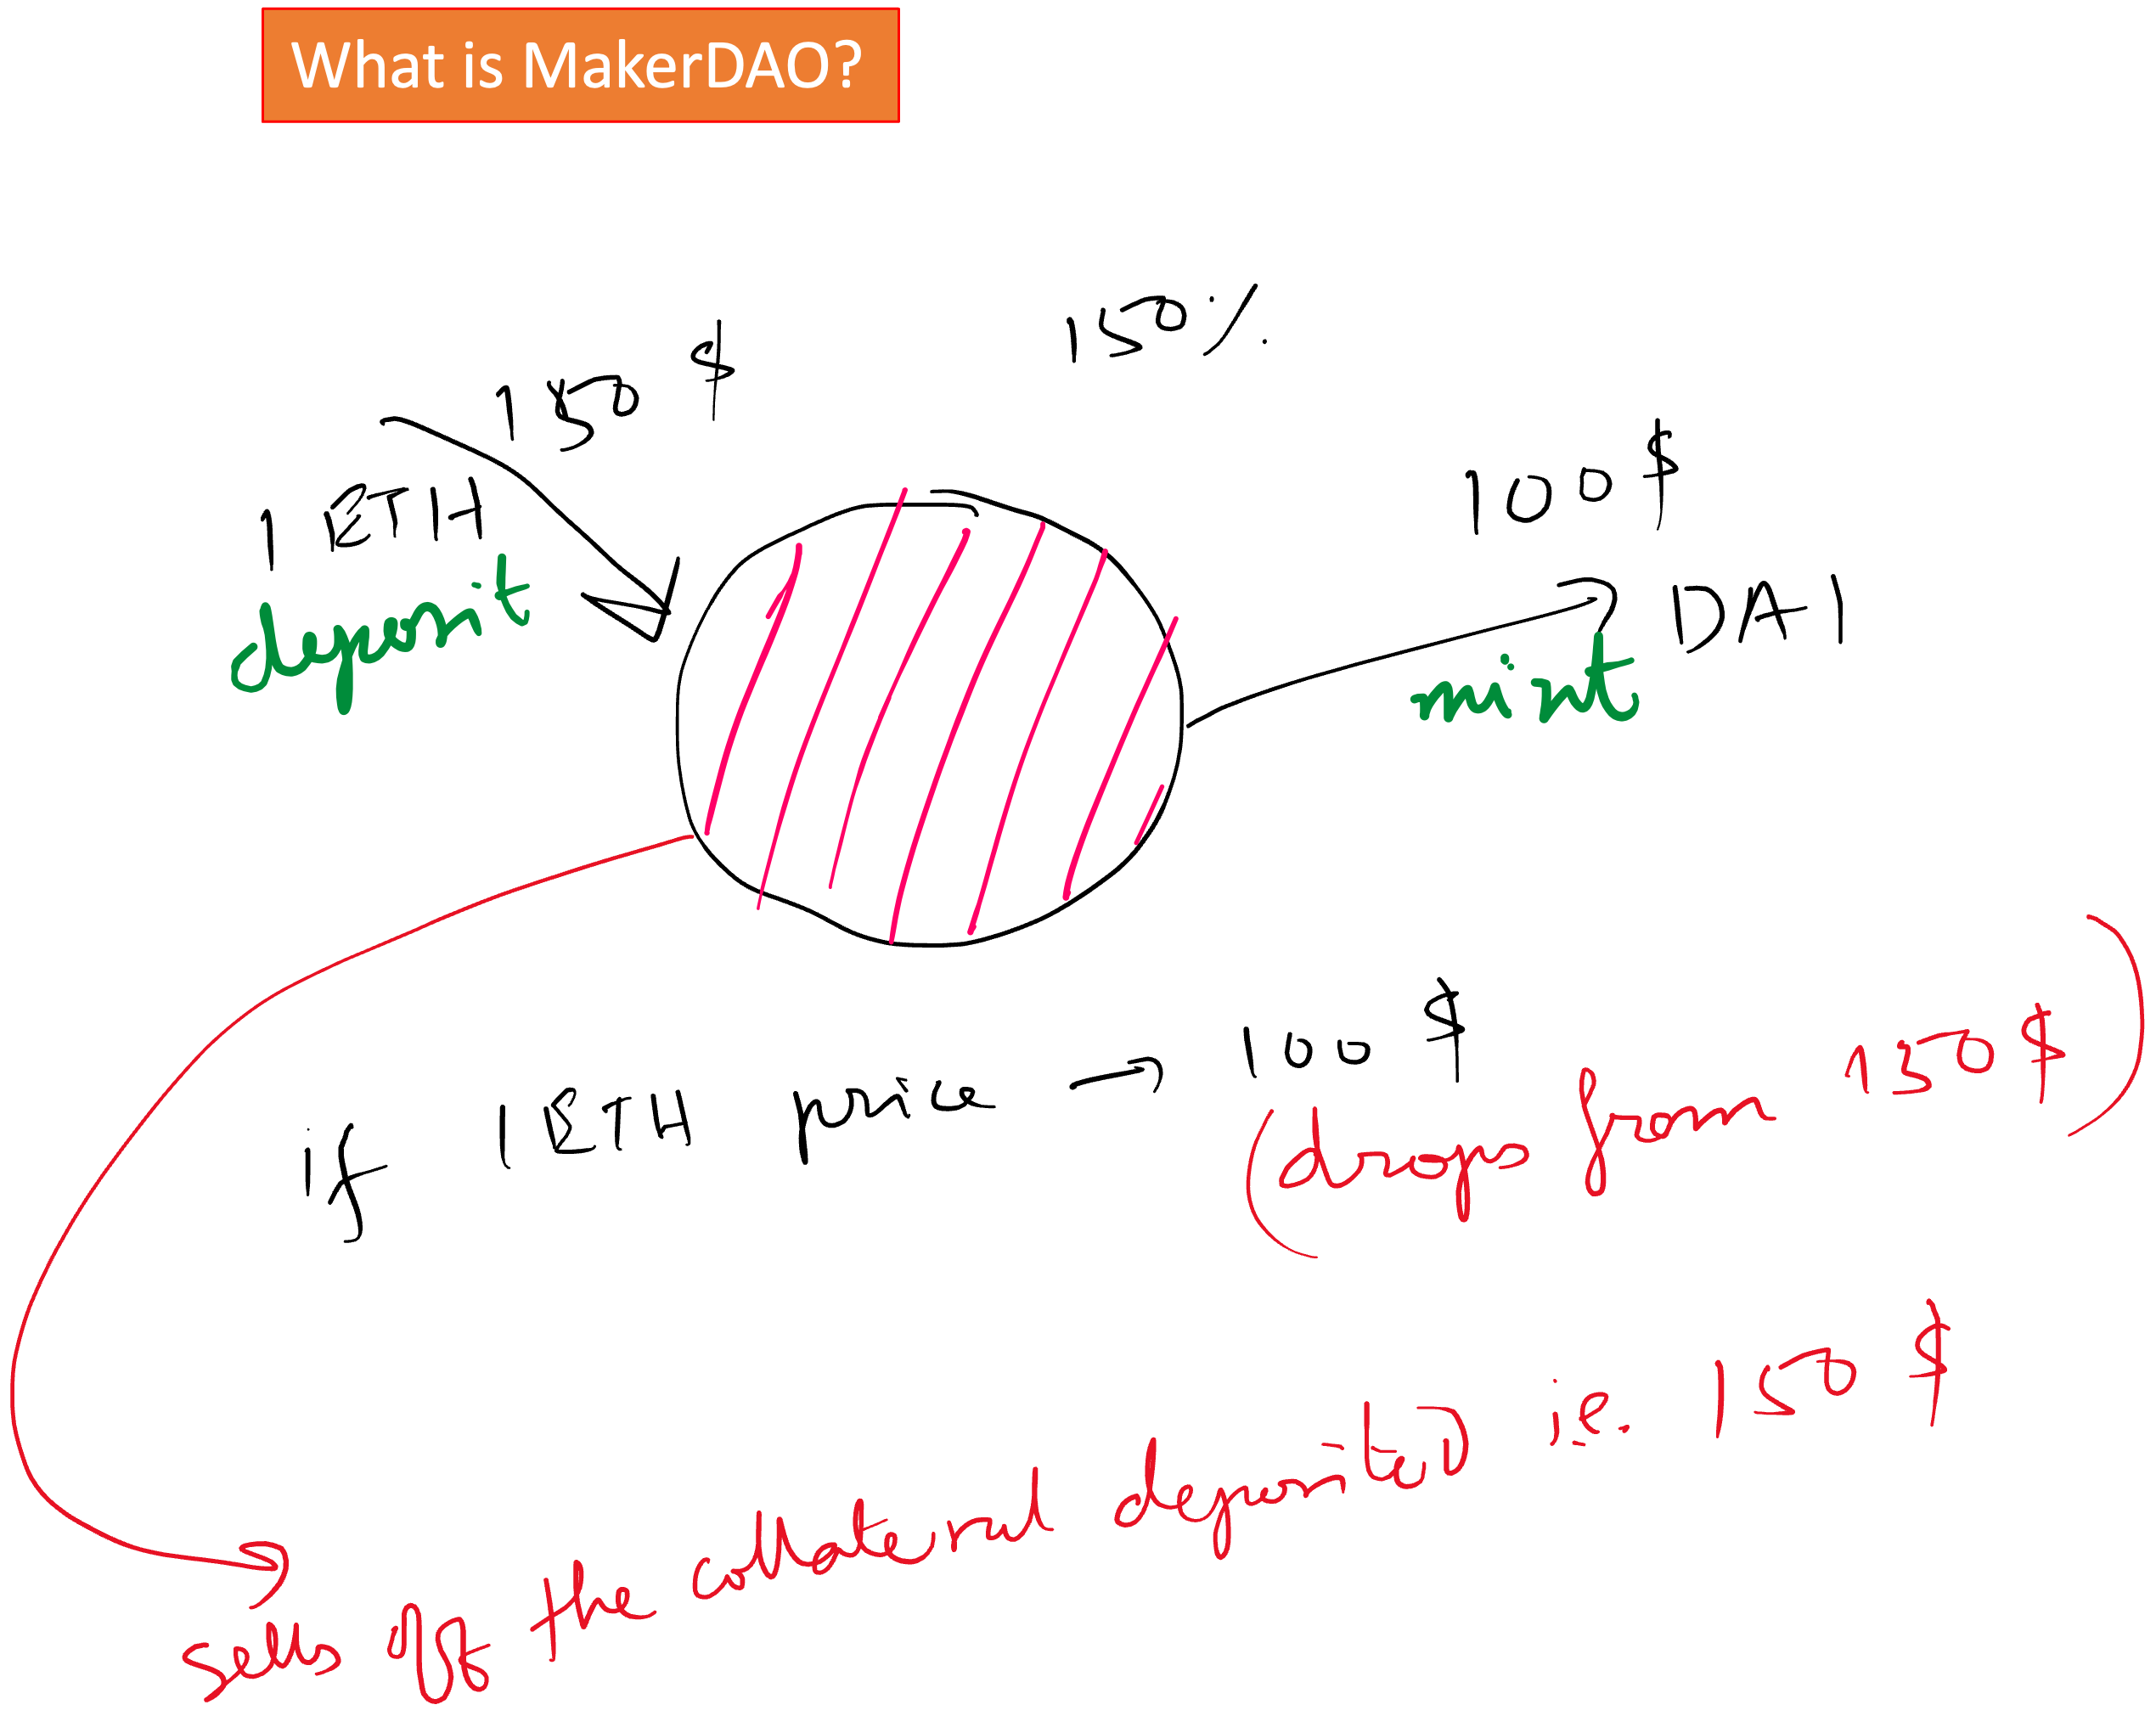 What is MakerDAO?
150%.
150 $
1 ETH
deposit
100 $
DAI
mint
if 1 ETH price → 100 $
(drops from 150 $)
sells off the collateral deposited i.e. 150 $